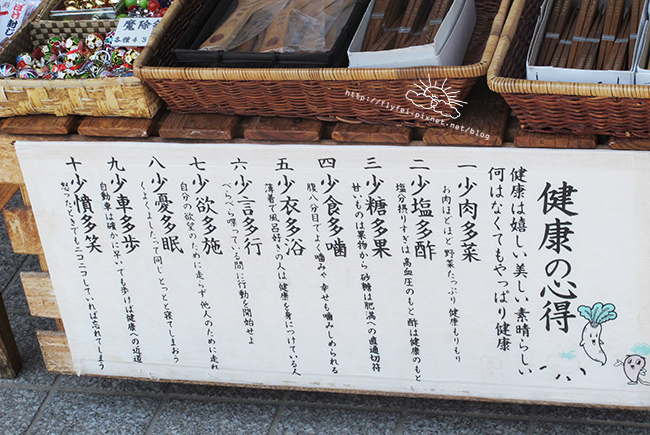 健康の心得
健康は嬉しい美しい素晴らしい
何はなくてもやっぱり健康
一少肉多菜
お肉ほどほど野菜たっぷり健康もりもり
二少塩多酢
塩分摂りすぎは高血圧のもと酢は健康のもと
三少糖多果
甘いものは果物から砂糖は肥満への直通切符
四少食多噛
腹八分目でよく噛みゃ幸せも噛みしめられる
五少衣多浴
薄着で風呂好きの人は健康を身につけている人
六少言多行
べらべら喋っている間に行動を開始せよ
七少欲多施
自分の欲望のために走らず他人のために走れ
八少憂多眠
くよくよしたって同じとっとと寝てしまおう
九少車多歩
自動車は確かに早いでも歩けば健康への近道
十少憤多笑
怒ったときでもニコニコしていれば忘れてしまう
魔除
http://flyfei.pixnet.net/blog